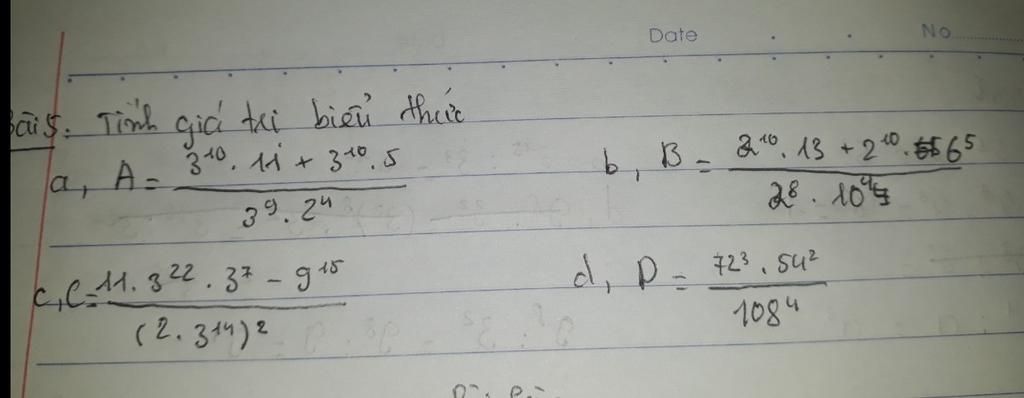 Date No
Bài 5: Tính giá trị biểu thức
a, A = \frac{3^{10} . 11 + 3^{10} . 5}{3^9 . 2^4} b, B = \frac{2^{10} . 13 + 2^{10} . 65}{2^8 . 104}
c, C = \frac{11 . 3^{22} . 3^7 - 9^{15}}{(2 . 3^{14})^2} d, D = \frac{72^3 . 54^2}{108^4}